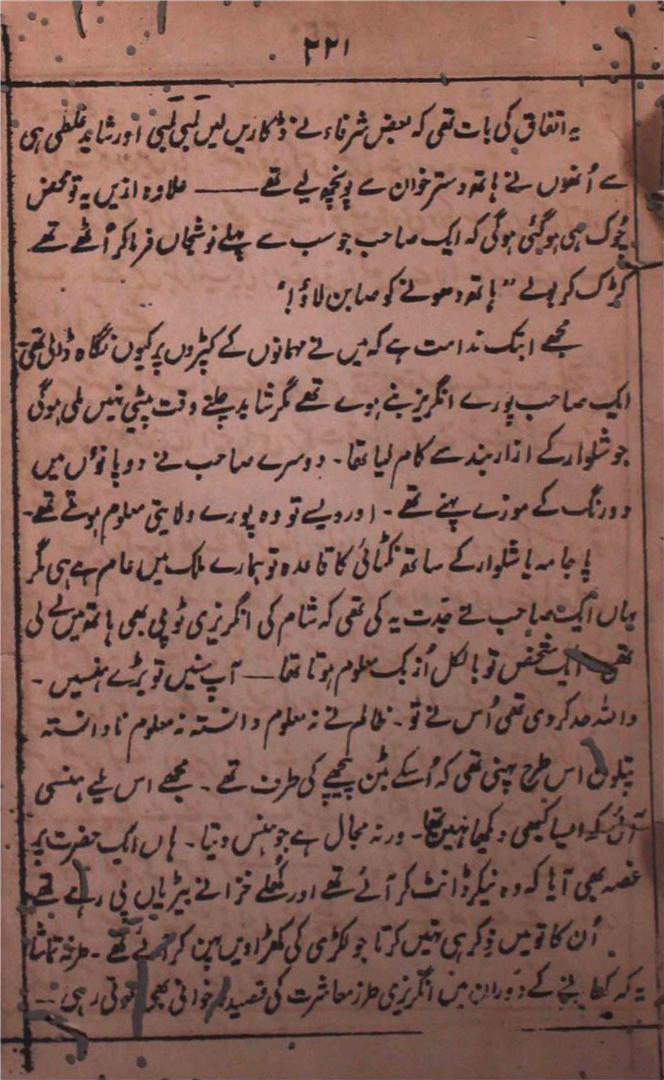 ۲۲۱
یہ اتفاق کی بات تھی کہ بعض شرفاء نے ڈکاریں لیں لمبی لمبی اور شاید غلطی ہی
سے اُنھوں نے ہاتھ دسترخوان سے پونچھ لیے تھے ——— علاوہ ازیں یہ تو محض
چُوک ہی ہو گئی ہو گی کہ ایک صاحب جو سب سے پہلے نوشِجاں فرما کر اُٹھے تھے
کڑک کر بولے "ہاتھ دھونے کو صابن لاؤ!"
مجھے ابتک ندامت ہے کہ میں نے مہمانوں کے کپڑوں پر کیوں نگاہ ڈالی تھی
ایک صاحب پورے انگریز بنے ہوے تھے مگر شاید چلتے وقت پیٹی نہیں ملی ہوگی
جو شلوار کے ازاربند سے کام لیا تھا۔ دوسرے صاحب نے دو پاؤں میں
دو رنگ کے موزے پہنے تھے۔ اور ویسے تو وہ پورے ولایتی معلوم ہوتے تھے۔
پاجامہ یا شلوار کے ساتھ نکٹائی کا قاعدہ تو ہمارے ملک میں عام ہے ہی مگر
یہاں ایک صاحب نے جدت یہ کی تھی کہ شام کی انگریزی ٹوپی بھی ہاتھ میں لے لی
تھی ایک شخص تو بالکل اُزبک معلوم ہوتا تھا — آپ سنیں تو بڑے ہنسیں۔
واللہ حد کر دی تھی اُس نے تو۔ ظالم نے نہ معلوم دانستہ نہ معلوم نادانستہ
پتلون اس طرح پہنی تھی کہ اُسکے بٹن پیچھے کی طرف تھے۔ مجھے اس لیے ہنسی
آئی کہ ایسا کبھی دیکھا نہیں تھا۔ ورنہ مجال ہے جو ہنس دیتا۔ ہاں ایک حضرت پر
غصہ بھی آیا کہ وہ نیکر ڈانٹ کر آئے تھے اور کُھلے خزانے بیڑیاں پی رہے تھے
اُن کا تو میں ذکر ہی نہیں کرتا جو لکڑی کی کھڑاویں پہن کر آئے تھے۔ طرفہ تماشا
یہ کہ کھانے کے دَوران میں انگریزی طرز معاشرت کی قصیدہ خوانی بھی ہوتی رہی —